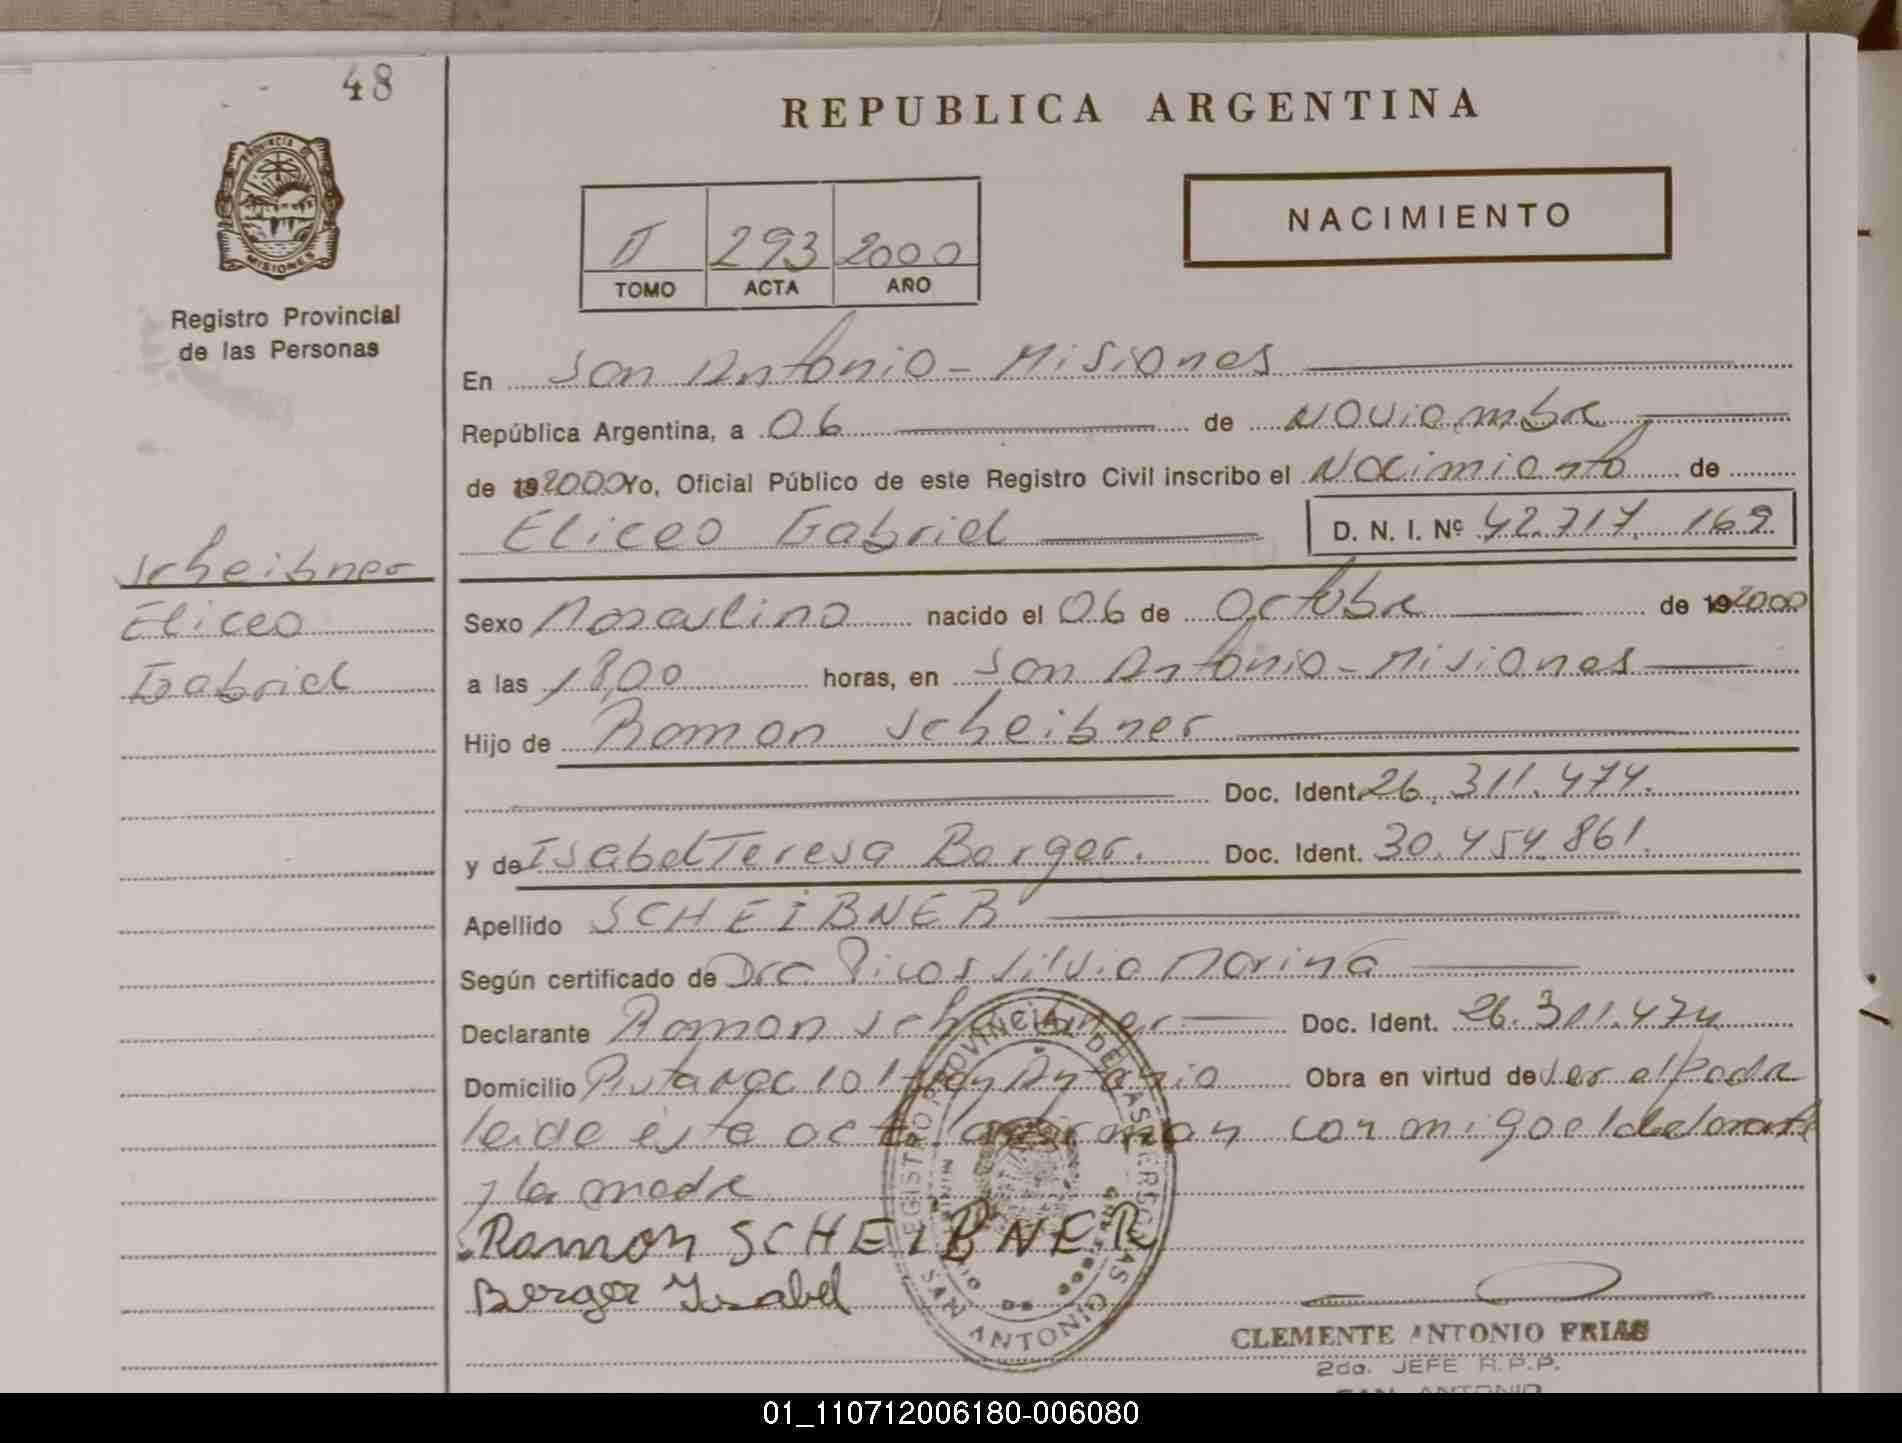 48
REPUBLICA ARGENTINA
PROVINCIA DE
MISIONES
Registro Provincial
de las Personas
II 293 2000
TOMO ACTA AÑO
NACIMIENTO
En San Antonio - Misiones
República Argentina, a 06 de Noviembre
de 192000 Yo, Oficial Público de este Registro Civil inscribo el Nacimiento de
Eliceo Gabriel D. N. I. Nº 42.717.169
Scheibner
Eliceo
Gabriel
Sexo Masculino nacido el 06 de Octubre de 192000
a las 18,00 horas, en San Antonio - Misiones
Hijo de Ramon Scheibner
Doc. Ident. 26.311.474.
y de Isabel Teresa Berger. Doc. Ident. 30.454.861.
Apellido SCHEIBNER
Según certificado de Dra. Silvia Marina
Declarante Ramon Scheibner Doc. Ident. 26.311.474
Domicilio San Antonio Obra en virtud de ser el Padre
leida esta acta la firman conmigo el declarante
y la madre
Ramon SCHEIBNER
Berger Ysabel
REGISTRO PROVINCIAL DE LAS PERSONAS
MINISTERIO DE GOBIERNO
SAN ANTONIO
CLEMENTE ANTONIO FRIAS
2do. JEFE R.P.P.
SAN ANTONIO
01_110712006180-006080